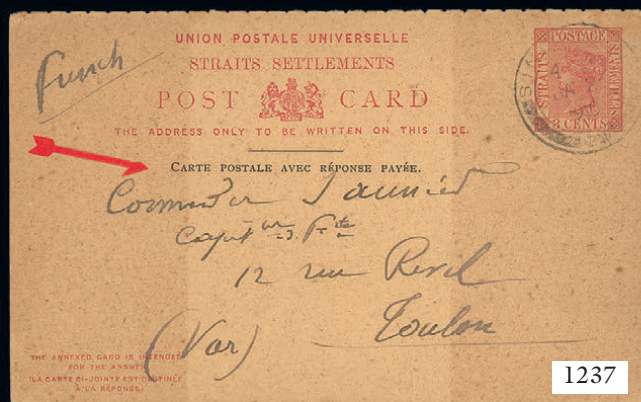 French
UNION POSTALE UNIVERSELLE
STRAITS SETTLEMENTS
POST CARD
THE ADDRESS ONLY TO BE WRITTEN ON THIS SIDE.
POSTAGE
STRAITS
SETTLEMENTS
3 CENTS
CARTE POSTALE AVEC RÉPONSE PAYÉE.
12 rue Revel
Toulon
(Var)
THE ANNEXED CARD IS INTENDED
FOR THE ANSWER
(LA CARTE CI-JOINTE EST DESTINÉE
À LA RÉPONSE.)
1237